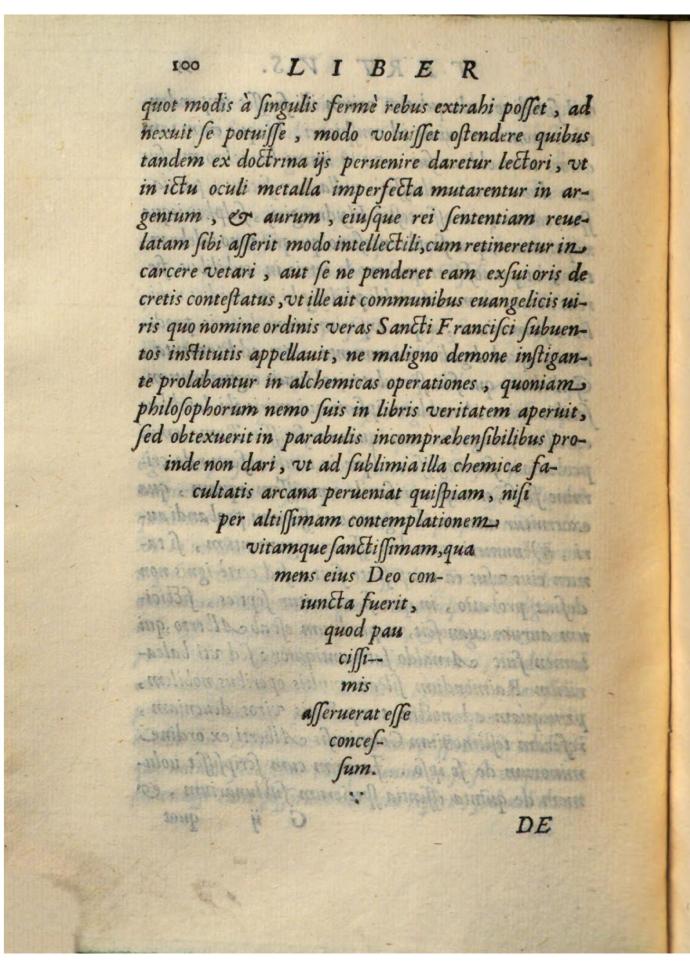 100 LIBER
quot modis à ſingulis fermè rebus extrahi poſſet, ad
nexuit ſe potuiſſe, modo voluiſſet oſtendere quibus
tandem ex doctrina ijs peruenire daretur lectori, vt
in ictu oculi metalla imperfecta mutarentur in ar-
gentum, & aurum, eiuſque rei ſententiam reue-
latam ſibi aſſerit modo intellectili, cum retineretur in
carcere vetari, aut ſe ne penderet eam exſui oris de
cretis conteſtatus, vt ille ait communibus euangelicis ui-
ris quo nomine ordinis veras Sancti Franciſci ſubuen-
tos inſtitutis appellauit, ne maligno demone inſtigan-
te prolabantur in alchemicas operationes, quoniam
philoſophorum nemo ſuis in libris veritatem aperuit,
ſed obtexuerit in parabulis incompræhenſibilibus pro-
inde non dari, vt ad ſublimia illa chemicæ fa-
cultatis arcana perueniat quiſpiam, niſi
per altiſſimam contemplationem
vitamque ſanctiſſimam, qua
mens eius Deo con-
iuncta fuerit,
quod pau
ciſſi-
mis
aſſeruerat eſſe
conceſ-
ſum.
DE